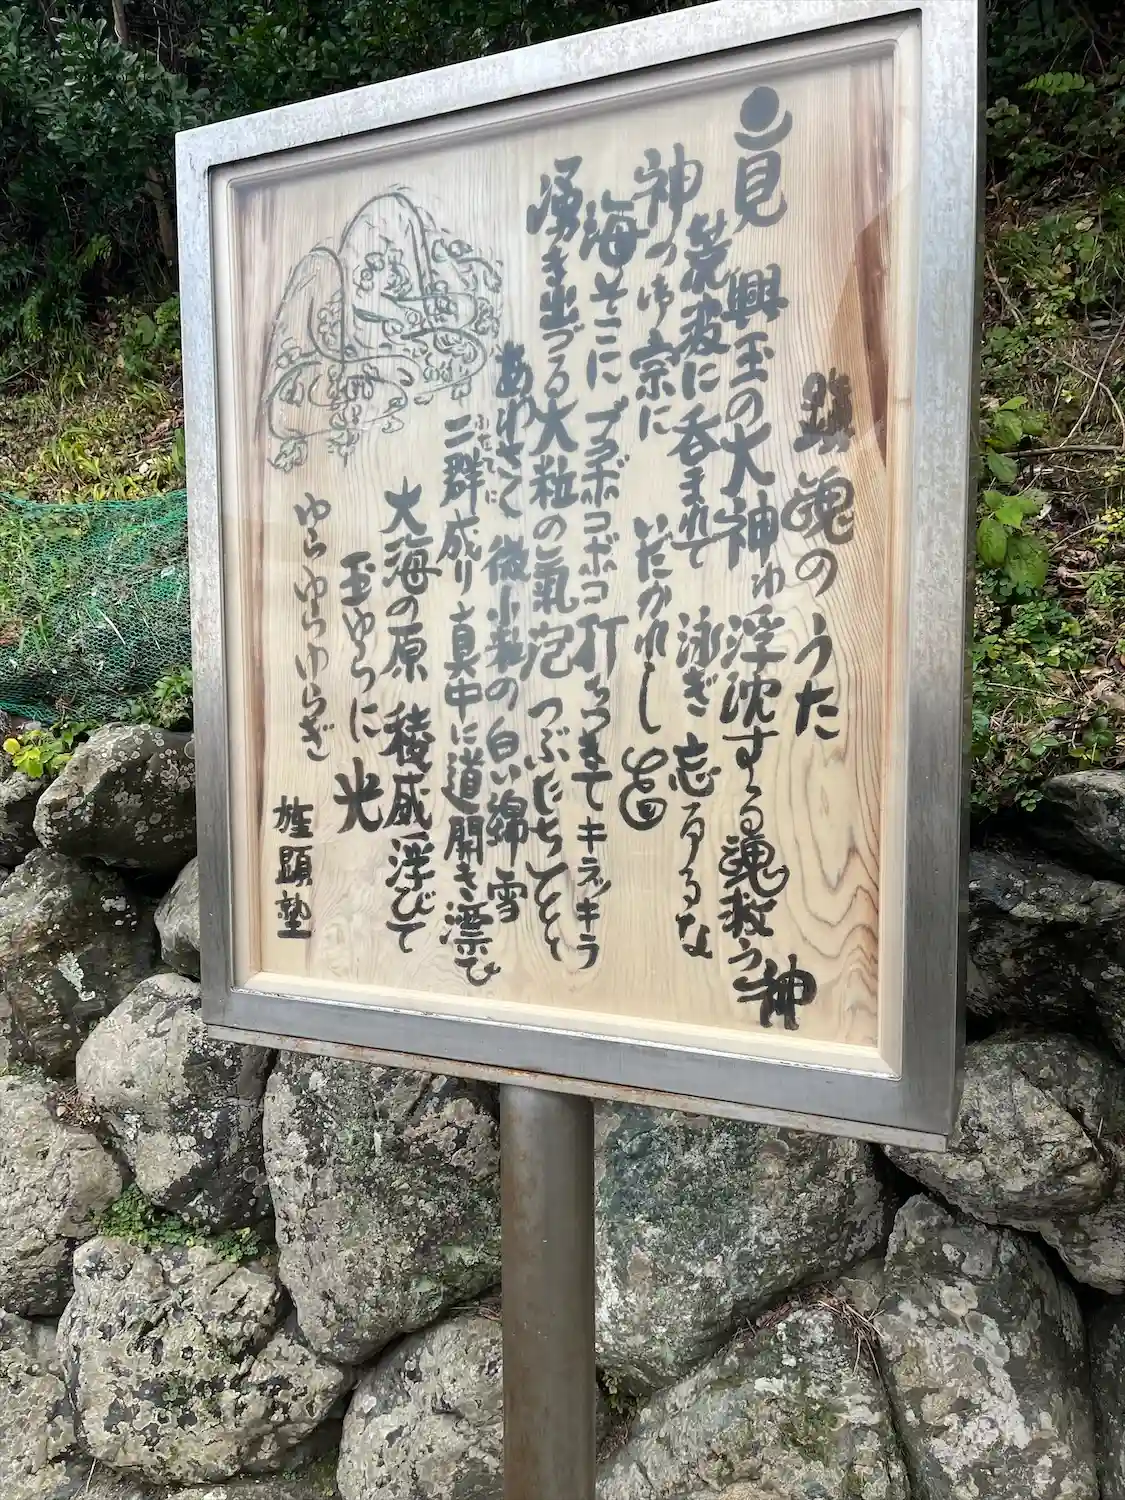 魂のうた
見 興玉の大神は浮沈する魂救う神
荒波に呑まれて 泳ぎ 忘るるな
神の御京に いだかれし
海そこに ブクボコボコ 打ちつきて キラキラ
湧き出づる大粒の氣泡 つぶだちて
あわせて 微小粒の白い綿雪
二群成り真中に道開き漂ひ
大海の原 稜威浮びて
玉ゆらに 光
ゆらゆらゆらぎ
顕塾